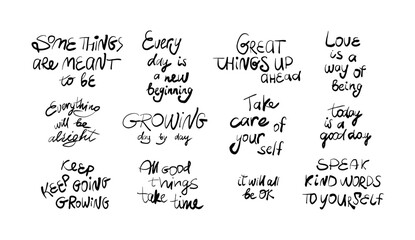 SOME THINGS
are MEANT
to be
Every
day is
a new
beginning
GREAT
THINGS UP
aHead
Love
is a
way of
being
Everything
will be
alright
GROWING
day by day
Take
care of
your self
today
is a
good day
Keep
KEEP GOING
GROWING
All GOOD
things
take time
it will all
be OK
SPEAK
KIND WORDS
TO YOURSELF